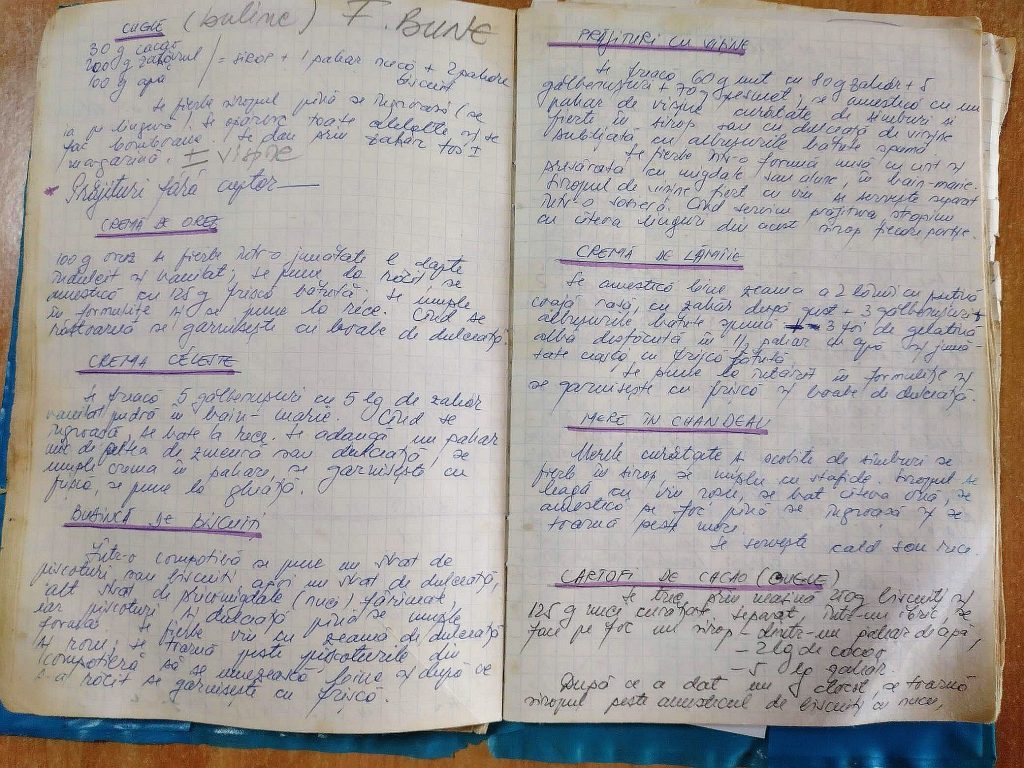 CUGLE (buline) F. BUNE
30 g cacao
200 g zahărul
100 g apă
= sirop + 1 pahar nuci + 2 pahare
biscuiți
Se fierbe siropul pînă se îngroașă (se
ia pe lingură). Se toate celelalte și se
fac bomboane. Se dau prin zahăr tos I
margarină. II VIȘINE
Prăjituri fără cuptor
CREMĂ DE OREZ
100 g orez se fierbe într-o jumătate l lapte
îndulcit și vanilat; se pune la răcit se
amestică cu 125 g frișcă bătută. Se umple
în formulițe și se pune la rece. Cînd se
răstoarnă se garnisește cu boabe de dulceață.
CREMA CELESTE
Se freacă 5 gălbenușuri cu 5 lg de zahăr
vanilat pudră în bain-marie. Cînd se
îngroașă, se bate la rece. Se adaugă un pahar
mic de de zmeură sau dulceață se
umple crema în pahare, se garnisește cu
frișcă, se pune la gheață.
DE BISCUIȚI
Într-o compotieră se pune un strat de
pișcoturi, sau biscuiți, apoi un strat de dulceață,
alt strat de (nuci) fărîmat,
iar pișcoturi și dulceață pînă se umple
Se fierbe vin cu zeamă de dulceață
și rom, se toarnă peste pișcoturile din
compotieră să se umezească bine și după ce
s-a răcit se garnisește cu frișcă.
PRĂJITURI CU VIȘINE
Se freacă 60 g unt cu 80 g zahăr + 5
gălbenușuri + 70 g pesmet; se amestică cu un
pahar de vișine curățate de sîmburi și
fierte în sirop sau cu dulceață de vișine
subțiată cu albușurile bătute spumă.
Se fierbe într-o formă unsă cu unt și
presărată cu migdale sau alune, în bain-marie.
Siropul de vișine fiert cu vin se servește separat
într-o sosieră. Cînd servim prăjitura stropim
cu cîteva linguri din acest sirop fiecare porție.
CREMĂ DE LĂMÎIE
Se amestică bine zeama a 2 lămîi cu puțină
coajă rasă, cu zahăr după gust + 3 gălbenușuri +
albușurile bătute spumă + 3 foi de gelatină
albă desfăcută în 1/2 pahar cu apă și jumă-
tate ceașcă cu frișcă bătută.
Se pune la întărit în formulițe și
se garnisește cu frișcă și boabe de dulceață.
MERE ÎN CHANDEAU
Merele curățate și scobite de sîmburi se
fierb în sirop, se umplu cu stafide. Siropul se
leagă cu vin roșu, se bat cîteva ouă, se
amestică pe foc pînă se îngroașă și se
toarnă peste mere.
Se servește cald sau rece.
CARTOFI DE CACAO (CUGLE)
Se trec prin mașină 250 g biscuiți și
125 g nuci curățate separat, într-un ibric, se
face pe foc un sirop - dintr-un pahar de apă,
- 2 lg de cacao
- 5 lg zahăr
După ce a dat un clocot, se toarnă
siropul peste amestecul de biscuiți cu nuci,